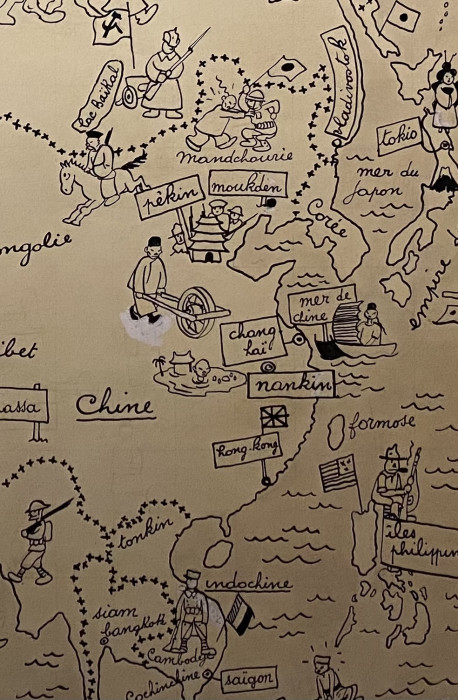 lac baïkal
vladivostok
mandchourie
tokio
mer du
Japon
pékin
moukden
Corée
ngolie
empire
mer de
chine
chang
haï
ibet
nankin
assa
Chine
formose
hong-kong
tonkin
iles
philippin
indochine
siam
bangkok
Cambodge
saïgon
Cochinchine